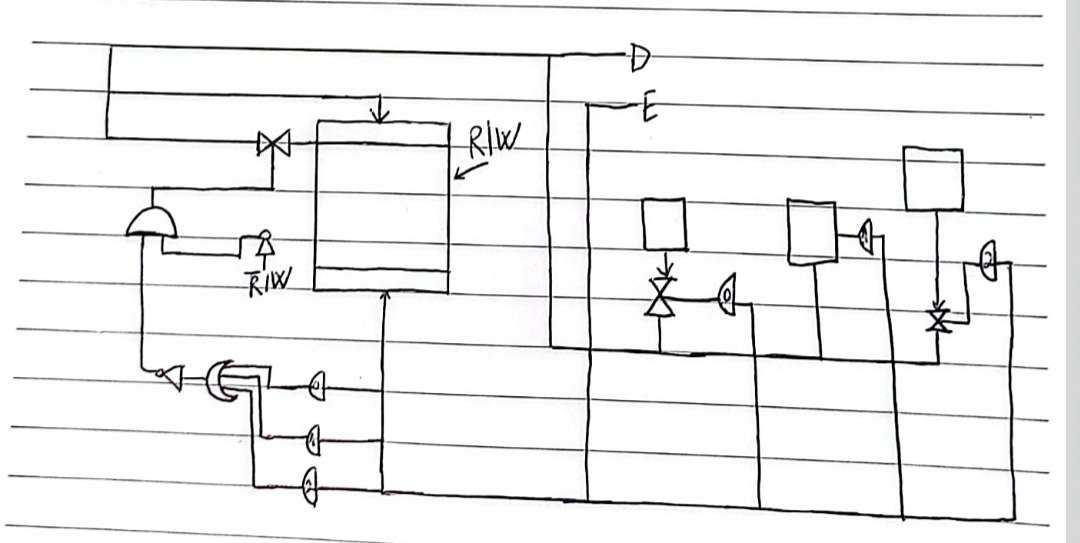 D
E
R/W
R̅/W
0
1
2
0
1
2